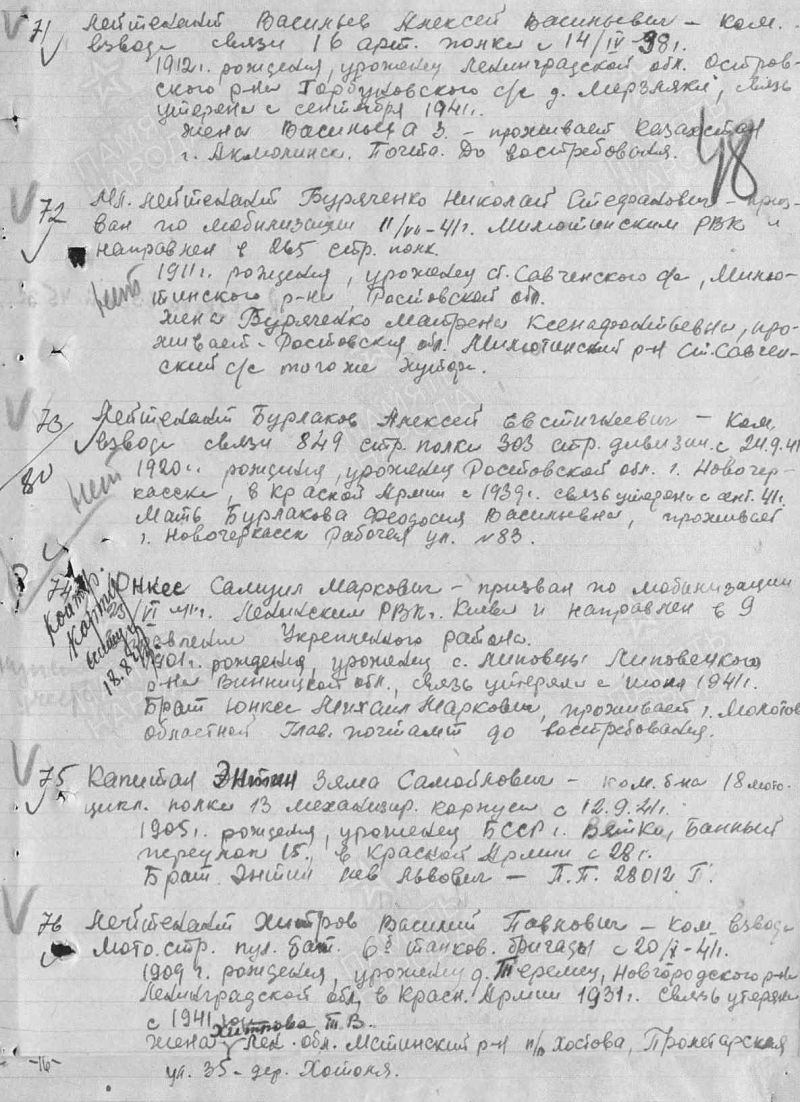 71 Лейтенант Васильев Алексей Васильевич – ком.
взвода связи 16 арт. полка с 14/IV 38г.
1912г. рождения, уроженец Ленинградской обл. Остров-
ского р-на Горбуновского с/с д. Мерзляки, связь
утеряна с сентября 1941г.
Жена Васильева З. – проживает Казахстан
г. Акмолинск. Почта. До востребования.
48
72 Мл. лейтенант Буряченко Николай Стефанович – приз-
ван по мобилизации 11/ -41г. Милютинским РВК и
направлен в 265 стр. полк.
нет
1911г. рождения, уроженец ст. Савченского с/с, Милю-
тинского р-на, Ростовской обл.
Жена Буряченко Матрена Ксенофонтьевна, про-
живает – Ростовская обл. Милютинский р-н Ст. Савчен-
ский с/с того же хутора.
73 Лейтенант Бурлаков Алексей Евстигнеевич – Ком.
взвода связи 849 стр. полка 303 стр. дивизии с 24.9.41
80
нет
1920г. рождения, уроженец Ростовской обл. г. Новочер-
касска, в Красной Армии с 1939г. связь утеряна с окт. 41г.
Мать Бурлакова Феодосия Васильевна, проживает
г. Новочеркасск Рабочая ул. №83.
74 Юнкес Самуил Маркович – призван по мобилизации
23/VI 41г. Ленинским РВК г. Киева и направлен в 9
управление Укрепленного района.
18.8
1901г. рождения, уроженец с. Липовцы Липовецкого
р-на Винницкой обл., связь утеряна с июня 1941г.
Брат Юнкес Михаил Маркович, проживает г. Молотов
областной Глав. почтамт до востребования.
75 Капитан Энтин Зяма Самойлович – ком. б-на 18 мото-
цикл. полка 13 механизир. корпуса с 12.9.41.
1905г. рождения, уроженец БССР г. Ветка, Банный
переулок 15, в Красной Армии с 28г.
Брат Энтин Лев Львович – П.П. 28012 Г.
76 Лейтенант Хитров Василий Павлович – ком. взвода
мото. стр. пул. бат. 6й танков. бригады с 20/I-41г.
1909г. рождения, уроженец д. Теремец, Новгородского р-на
Ленинградской обл., в Красн. Армии 1931г. связь утеряна
с 1941 года
Хитрова Т.В.
Жена Лен. обл. Мстинский р-н п/о Хотова, Пролетарская
ул. 35 – дер. Хотоля.
-16-